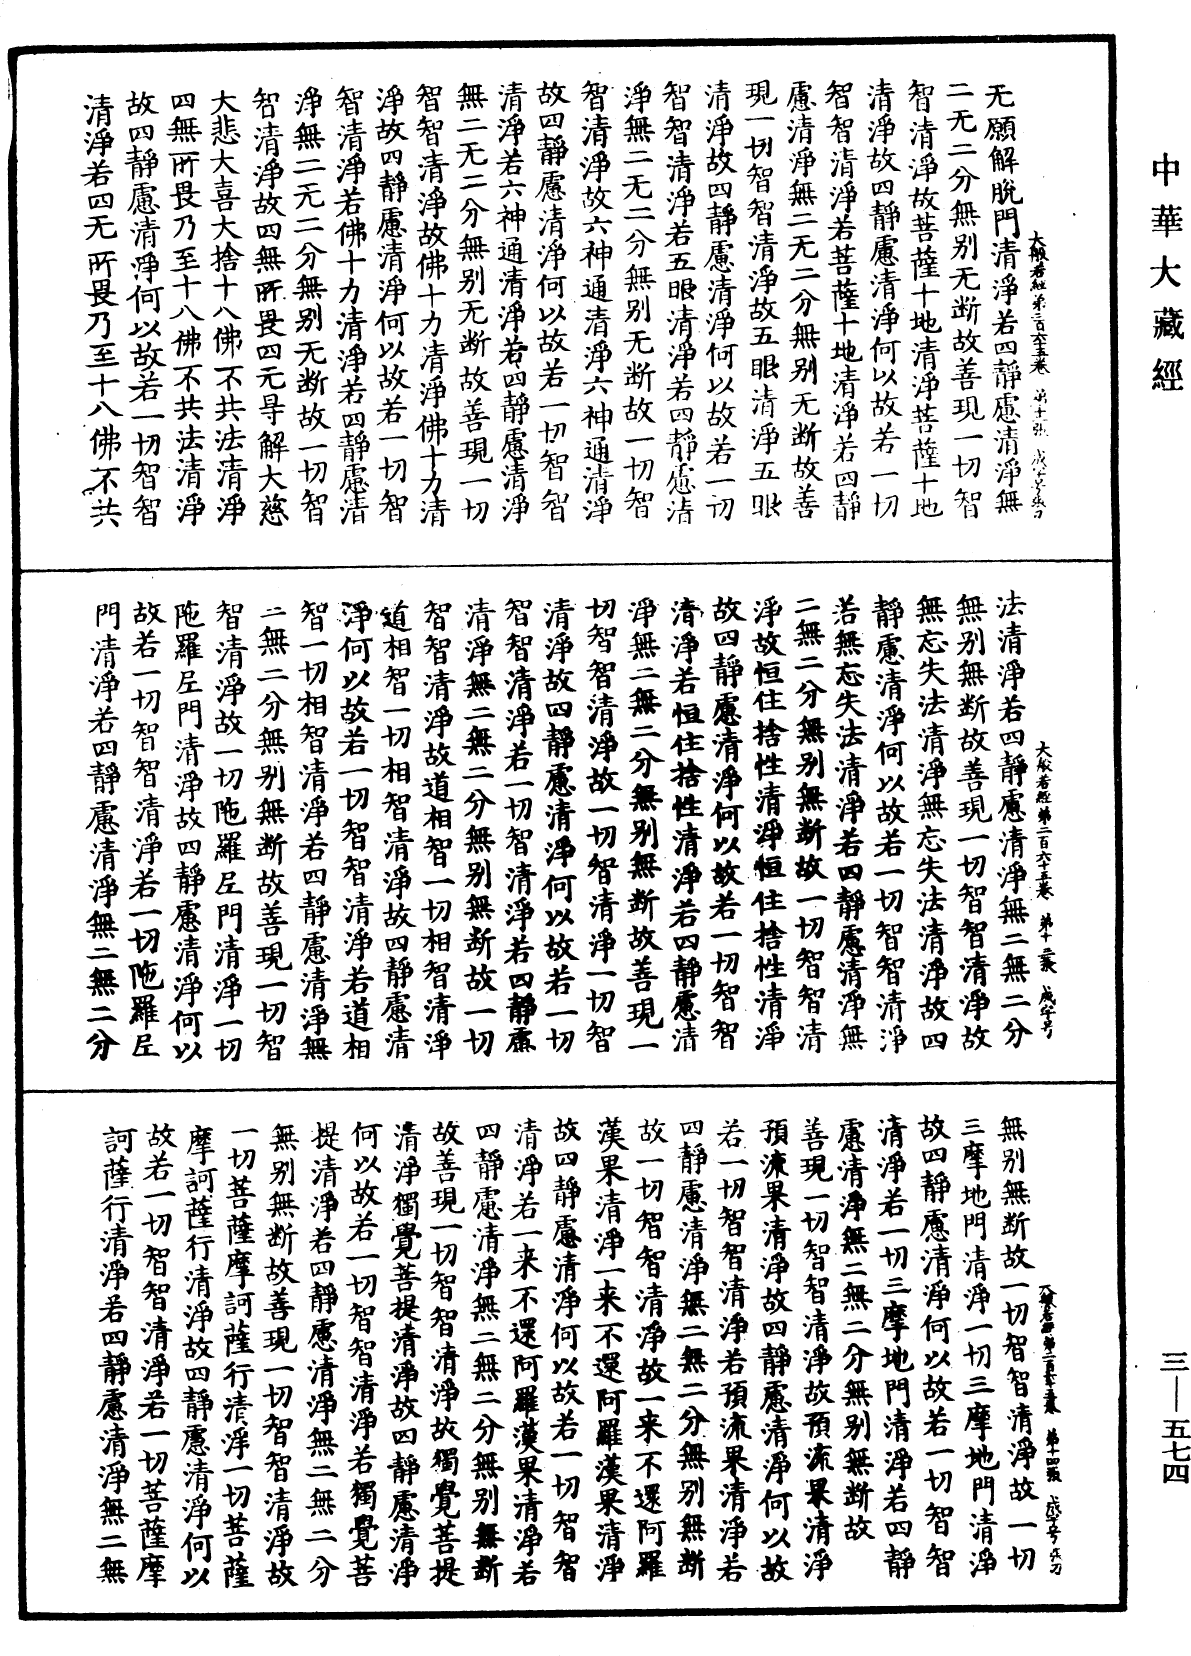 中華大藏經
无願解脫門清淨若四靜慮清淨無
二无二分無别无断故善現一切智
智清淨故菩薩十地清淨菩薩十地
清淨故四靜慮清淨何以故若一切
智智清淨若菩薩十地清淨若四靜
慮清淨無二无二分無别无断故善
現一切智智清淨故五眼清淨五眼
清淨故四靜慮清淨何以故若一切
智智清淨若五眼清淨若四靜慮清
淨無二无二分無别无断故一切智
智清淨故六神通清淨六神通清淨
故四靜慮清淨何以故若一切智智
清淨若六神通清淨若四靜慮清淨
無二无二分無别无断故善現一切
智智清淨故佛十力清淨佛十力清
淨故四靜慮清淨何以故若一切智
智清淨若佛十力清淨若四靜慮清
淨無二无二分無别无断故一切智
智清淨故四無所畏四无㝵解大慈
大悲大喜大捨十八佛不共法清淨
四無所畏乃至十八佛不共法清淨
故四靜慮清淨何以故若一切智智
清淨若四无所畏乃至十八佛不共
大般若經第二百六十五卷
法清淨若四靜慮清淨無二無二分
無别無断故善現一切智智清淨故
無忘失法清淨無忘失法清淨故四
靜慮清淨何以故若一切智智清淨
若無忘失法清淨若四靜慮清淨無
二無二分無别無断故一切智智清
淨故恒住捨性清淨恒住捨性清淨
故四靜慮清淨何以故若一切智智
清淨若恒住捨性清淨若四靜慮清
淨無二無二分無别無断故善現一
切智智清淨故一切智清淨一切智
清淨故四靜慮清淨何以故若一切
智智清淨若一切智清淨若四靜慮
清淨無二無二分無别無断故一切
智智清淨故道相智一切相智清淨
道相智一切相智清淨故四靜慮清
淨何以故若一切智智清淨若道相
智一切相智清淨若四靜慮清淨無
二無二分無别無断故善現一切智
智清淨故一切陁羅尼門清淨一切
陁羅尼門清淨故四靜慮清淨何以
故若一切智智清淨若一切陁羅尼
門清淨若四靜慮清淨無二無二分
大般若經第二百六十五卷 第十三張 咸字号
無别無断故一切智智清淨故一切
三摩地門清淨一切三摩地門清淨
故四靜慮清淨何以故若一切智智
清淨若一切三摩地門清淨若四靜
慮清淨無二無二分無别無断故
善現一切智智清淨故預流果清淨
預流果清淨故四靜慮清淨何以故
若一切智智清淨若預流果清淨若
四靜慮清淨無二無二分無别無断
故一切智智清淨故一来不還阿羅
漢果清淨一来不還阿羅漢果清淨
故四靜慮清淨何以故若一切智智
清淨若一来不還阿羅漢果清淨若
四靜慮清淨無二無二分無别無断
故善現一切智智清淨故獨覺菩提
清淨獨覺菩提清淨故四靜慮清淨
何以故若一切智智清淨若獨覺菩
提清淨若四靜慮清淨無二無二分
無别無断故善現一切智智清淨故
一切菩薩摩訶薩行清淨一切菩薩
摩訶薩行清淨故四靜慮清淨何以
故若一切智智清淨若一切菩薩摩
訶薩行清淨若四靜慮清淨無二無
三—五七四